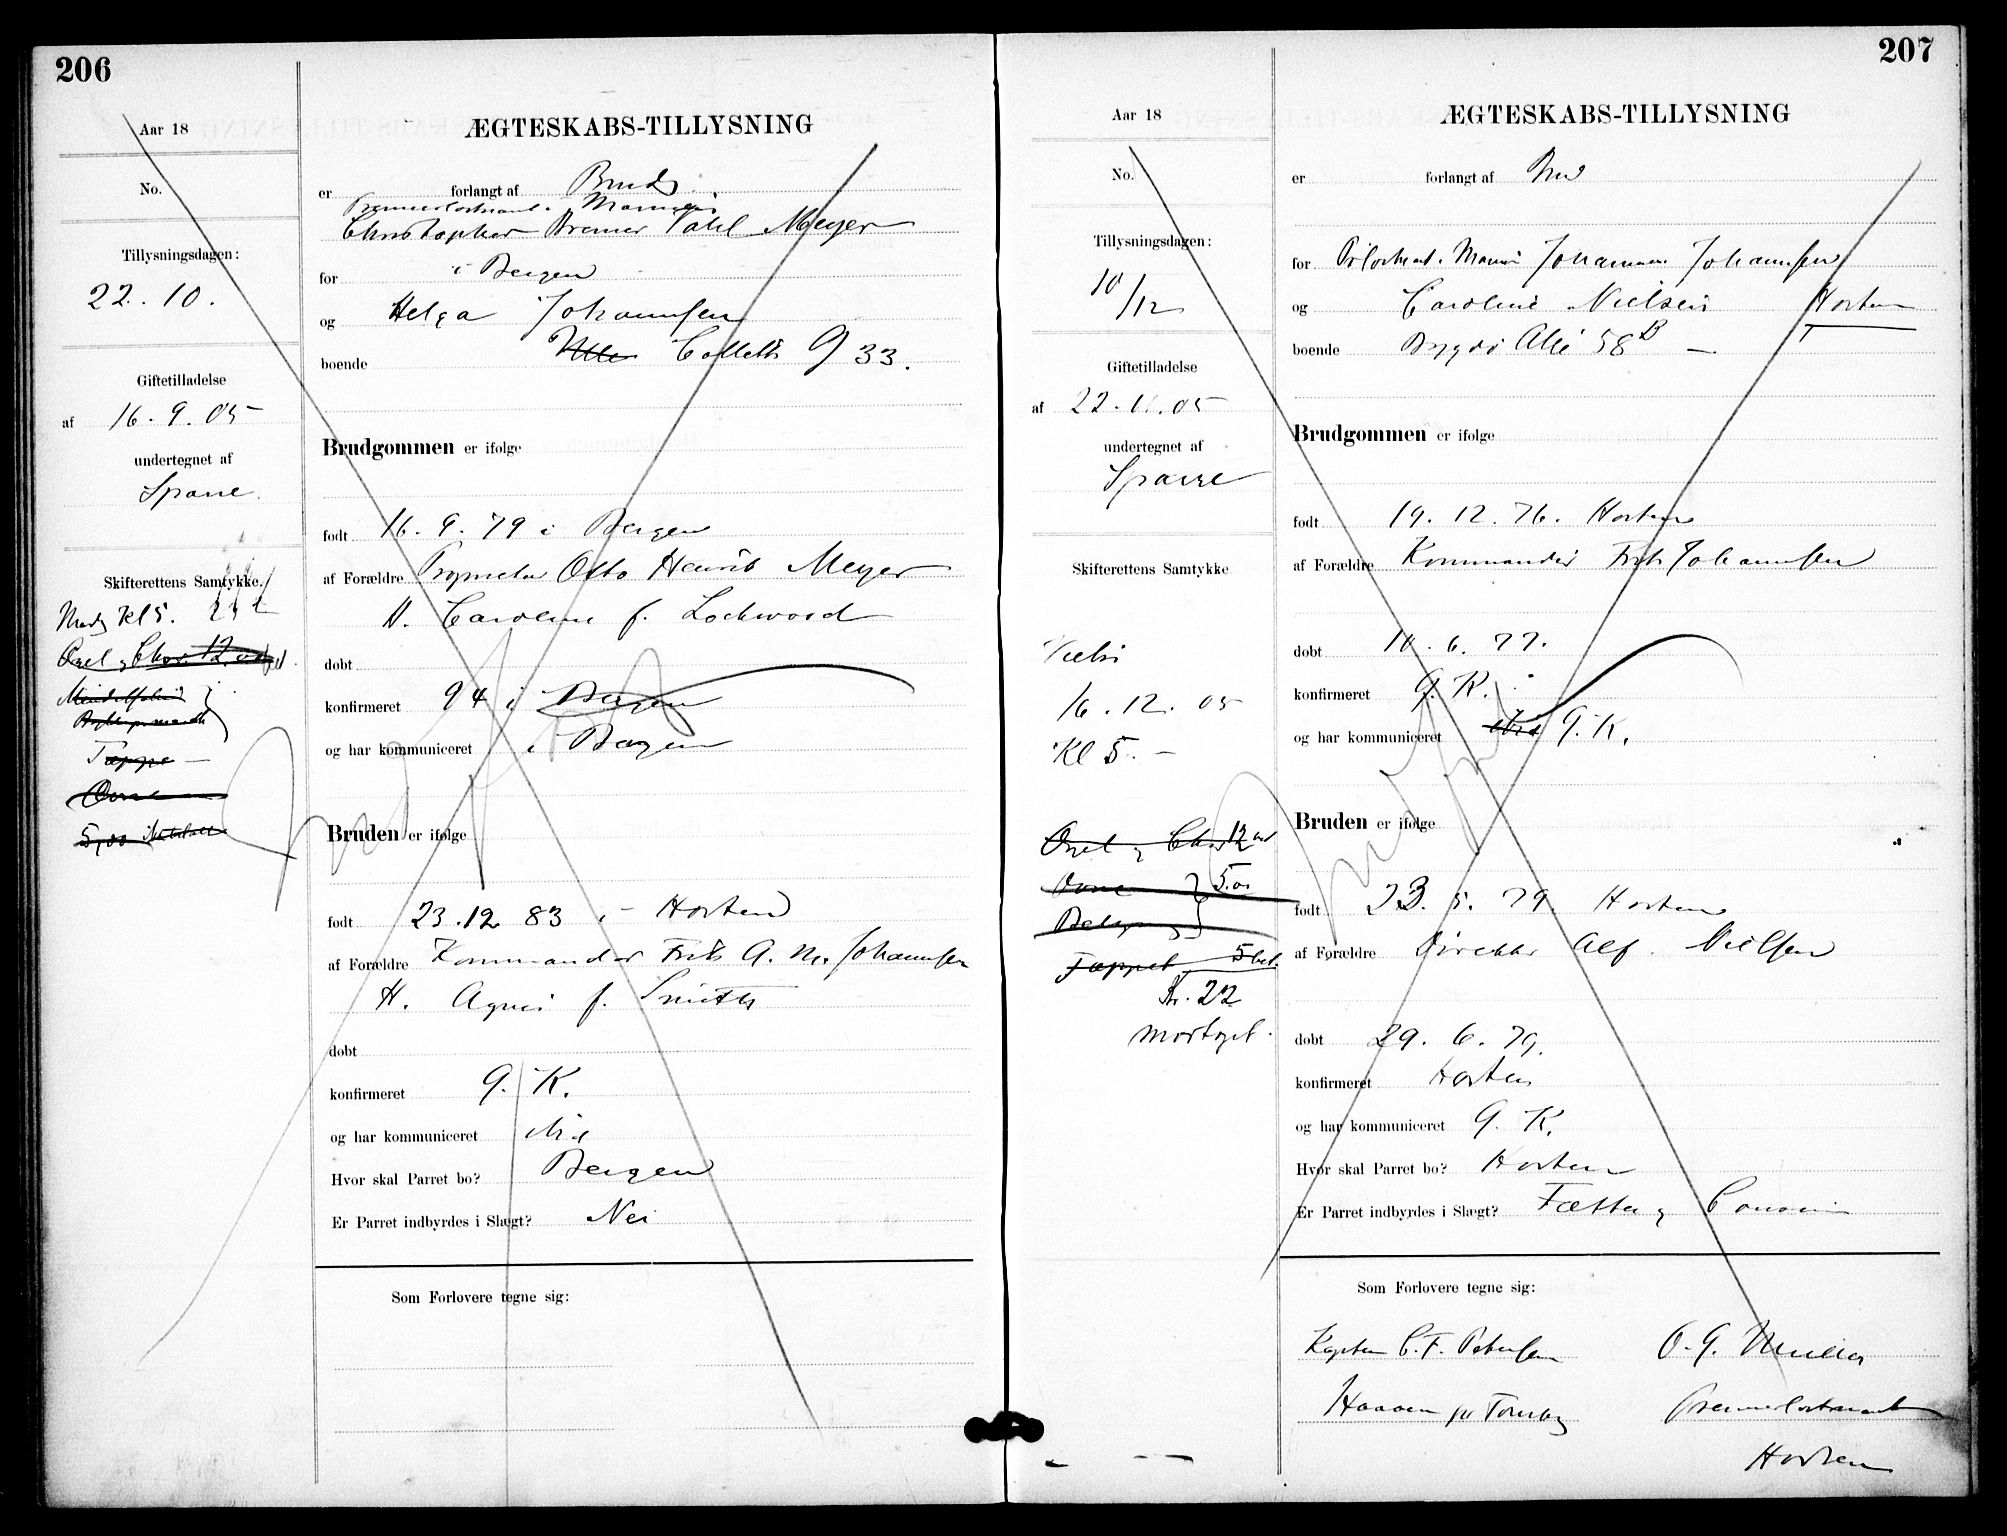 206
Aar 18
No.
Tillysningsdagen:
22. 10.
Giftetilladelse
af 16. 9. 05
undertegnet af
Sparre.
Skifterettens Samtykke.
Kl 5.
Orgel og Chor 12,00
Tæppe
5,00
ÆGTESKABS-TILLYSNING
er forlangt af Brud
Premierløitnant i Marinen
Christopher Bremer Vahl Meyer
for i Bergen
og Helga Johannsen
boende Colletts G 33.
Brudgommen er ifølge
født 16. 9. 79 i Bergen
af Forældre Otto Henrik Meyer
H. Caroline f. Lockwood
døbt
konfirmeret 94 i Bergen
og har kommuniceret i Bergen
Bruden er ifølge
født 23.12 83 i Horten
af Forældre Kommandør Frits A. M. Johannsen
H. Agnes f. Smith
døbt
konfirmeret G. K.
og har kommuniceret
Hvor skal Parret bo? Bergen
Er Parret indbyrdes i Slægt? Nei
Som Forlovere tegne sig:
207
Aar 18
No.
Tillysningsdagen:
10/12
Giftetilladelse
af 22. 11. 05
undertegnet af
Sparre
Skifterettens Samtykke
Vielse
16. 12. 05
Kl 5. —
Orgel og Chor 12
5.00
Tæppet 5 bet.
Kr. 22
modtaget.
ÆGTESKABS-TILLYSNING
er forlangt af Brud
for Johannsen
og Caroline Nielsen Horten
boende Bygdø Allé 58B —
Brudgommen er ifølge
født 19. 12. 76. Horten
af Forældre Kommandør Frits Johannsen
døbt 10. 6. 77.
konfirmeret G. K.
og har kommuniceret G. K.
Bruden er ifølge
født 23. 5. 79. Horten
af Forældre Direktør Alf. Nielsen
døbt 29. 6. 79.
konfirmeret Horten
og har kommuniceret G. K.
Hvor skal Parret bo? Horten
Er Parret indbyrdes i Slægt? Fætter og Cousine
Som Forlovere tegne sig:
Kaptein C. F. Petersen O. G. Müller
Premierløitnant
Horten